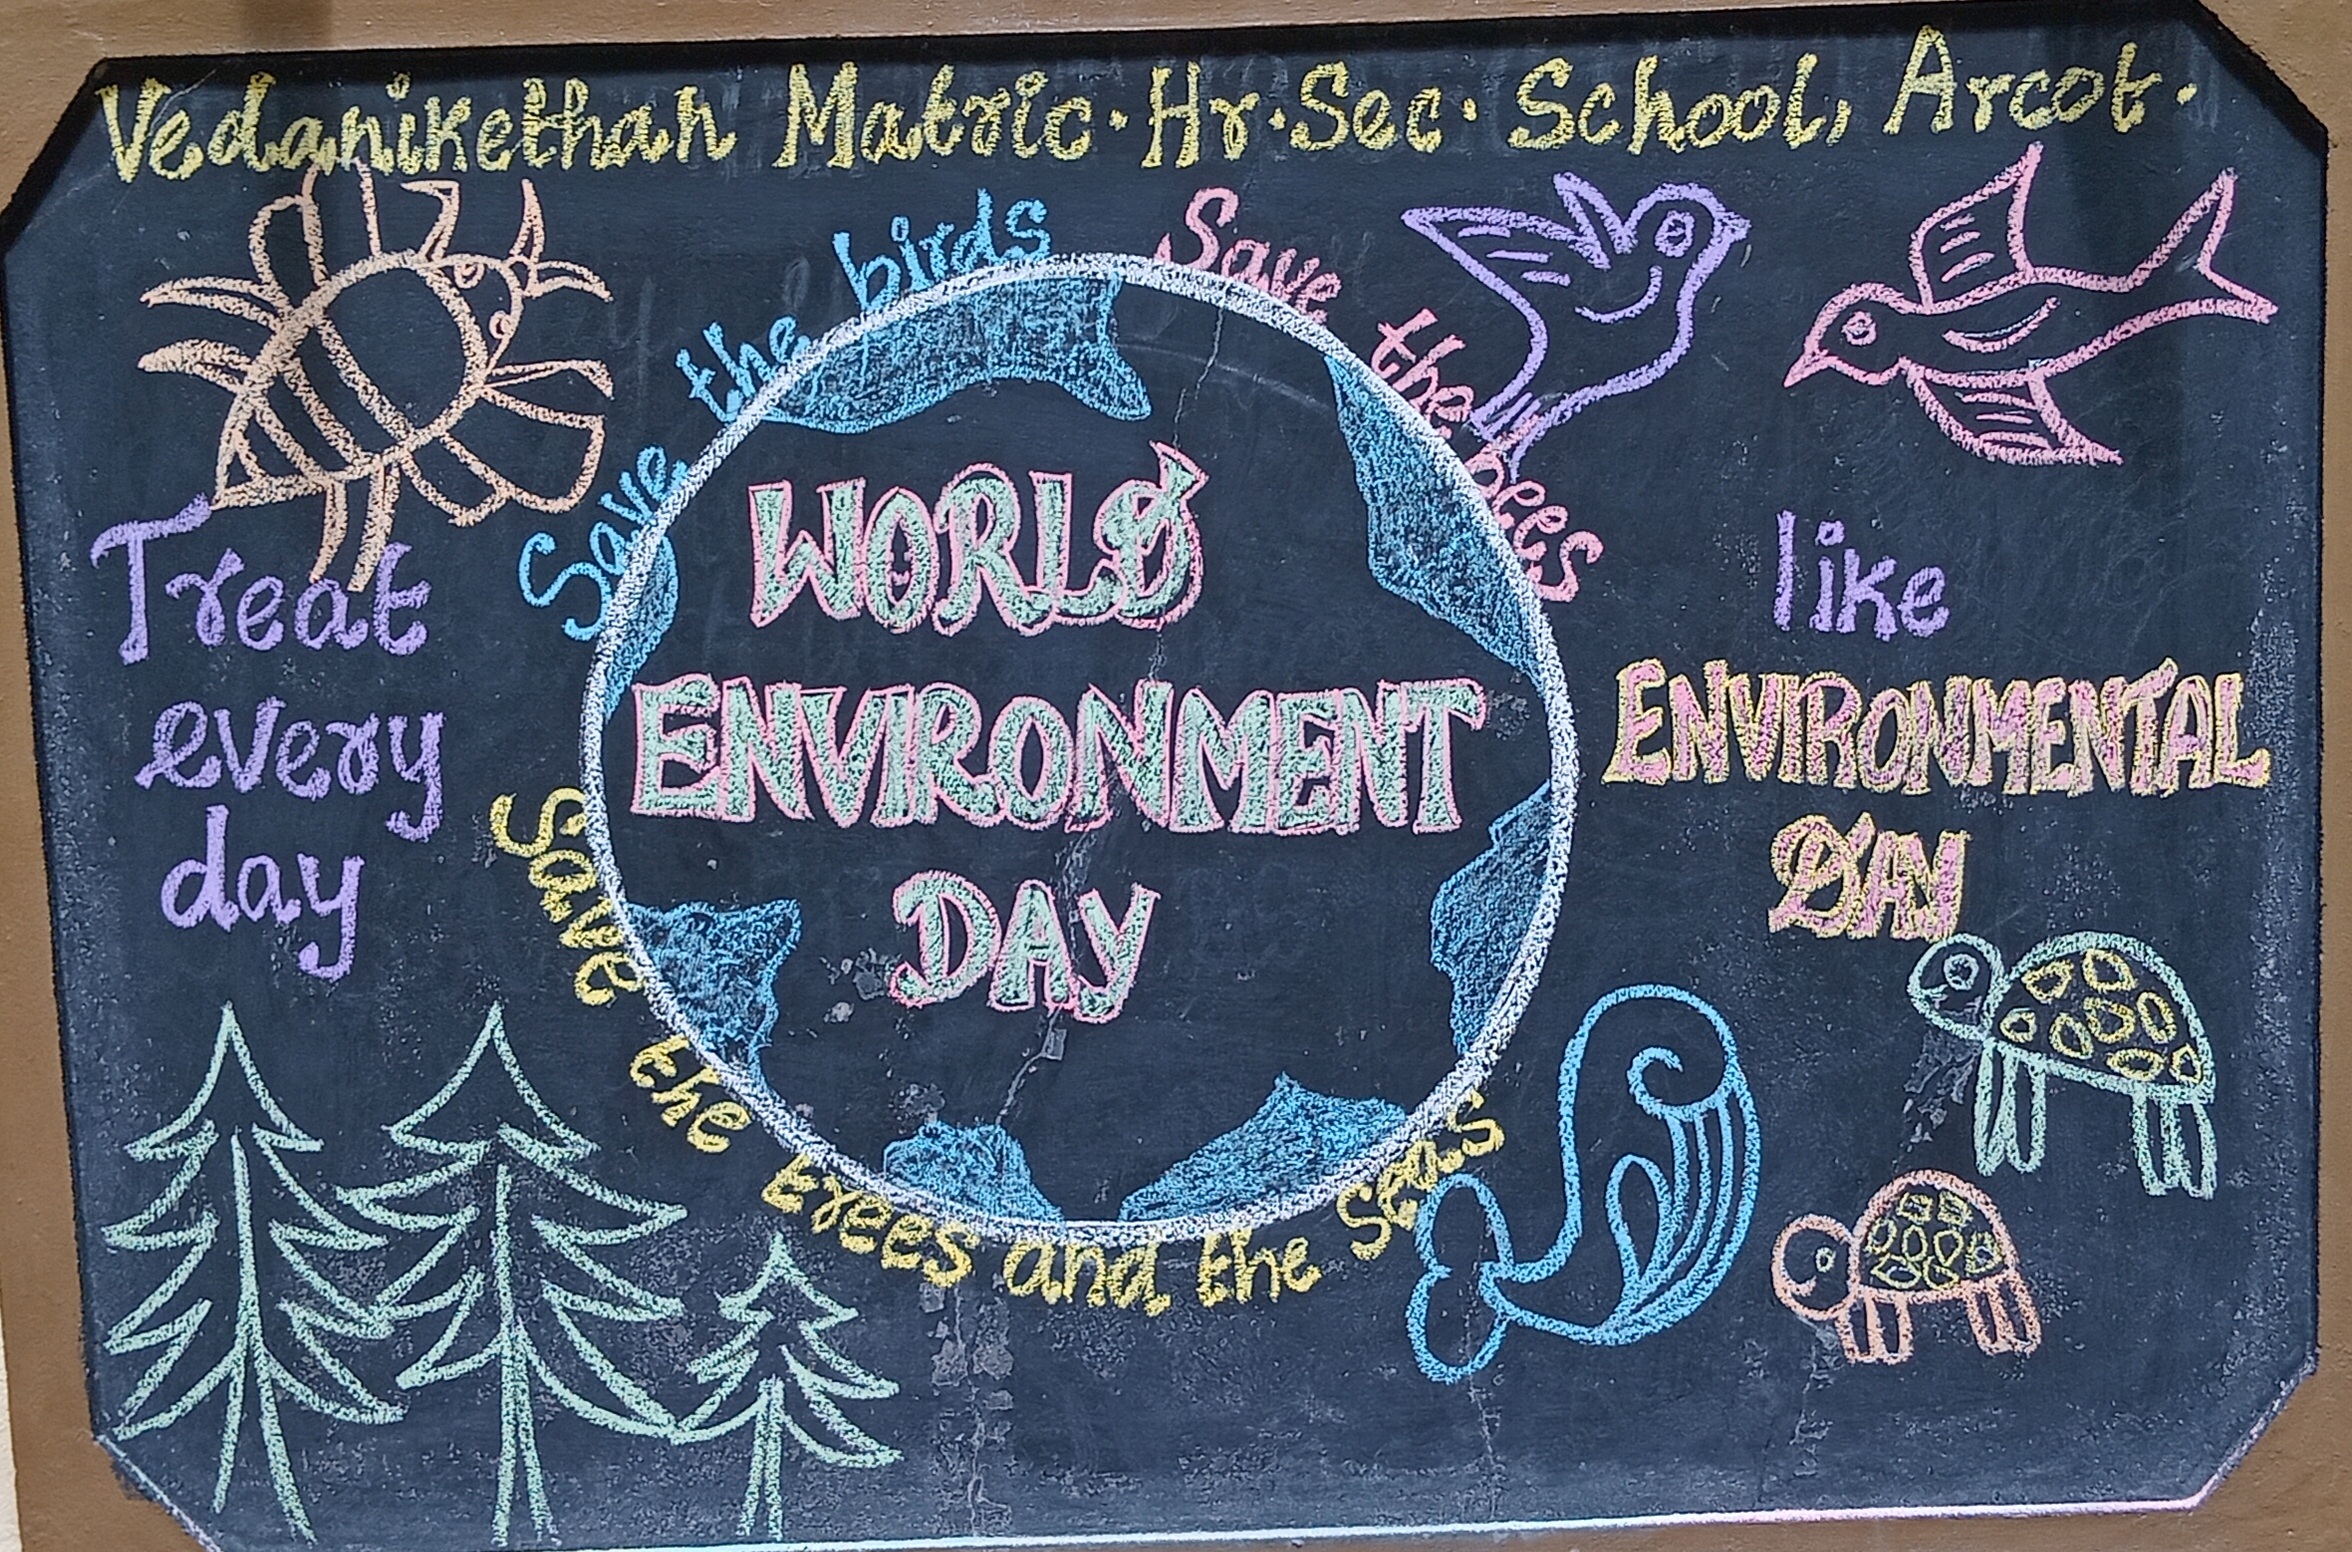 Vedanikethan Matric. Hr. Sec. School, Arcot.
Save the birds
Save the bees
Treat
every
day
WORLD
ENVIRONMENT
DAY
like
ENVIRONMENTAL
DAY
Save the trees and the seas